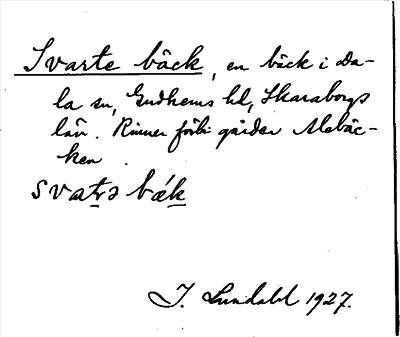 Svarte bäck, en bäck i Da-
la sn, Gudhems hd, Skaraborgs
län. Rinner förbi gården Alebäc-
ken.
svatə bǽk
I. Lundahl 1927.